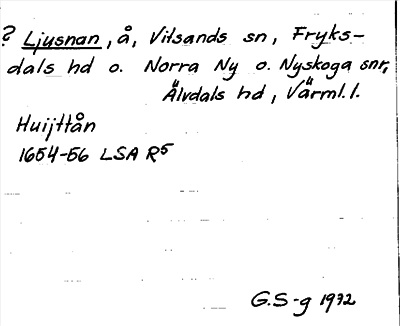 ? Ljusnan, å, Vitsands sn, Fryks-
dals hd o. Norra Ny o. Nyskoga snr,
Älvdals hd, Värml. l.
Huijttån
1654-56 LSA R5
G.S-g 1932